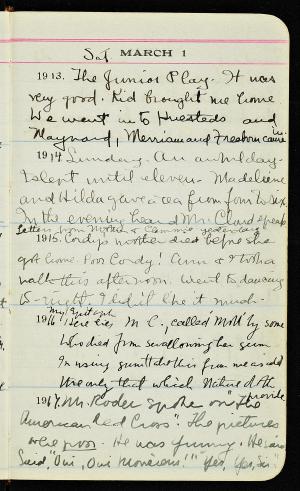 Sat MARCH 1
1913. The Junior Play. It was
very good. Kid brought me home
We went in to Huesteds and
Maynard, Merriam and Freeborn came in.
1914 Sunday. An awful day.
I slept until eleven. Madeleine
and Hilda gave a tea from four to six.
In the evening heard Mr. speak
Letters from Mother & Cammie yesterday
1915. Cordy's mother died before she
got home. Poor Cordy! Ann & I took a
walk this afternoon. Went to dancing
to-night. I did like it much.
My Epitaph
1916 Here lies M C, called "Moll" by some
Who died from swallowing her gum
In using gum
We only that which Nature doth provide
1917. Mr. Roder spoke on "The
American Red Cross". The pictures
were poor. He was funny. He
said, "Oui, Oui Monsieur!" "Yes, Yes, Sir"